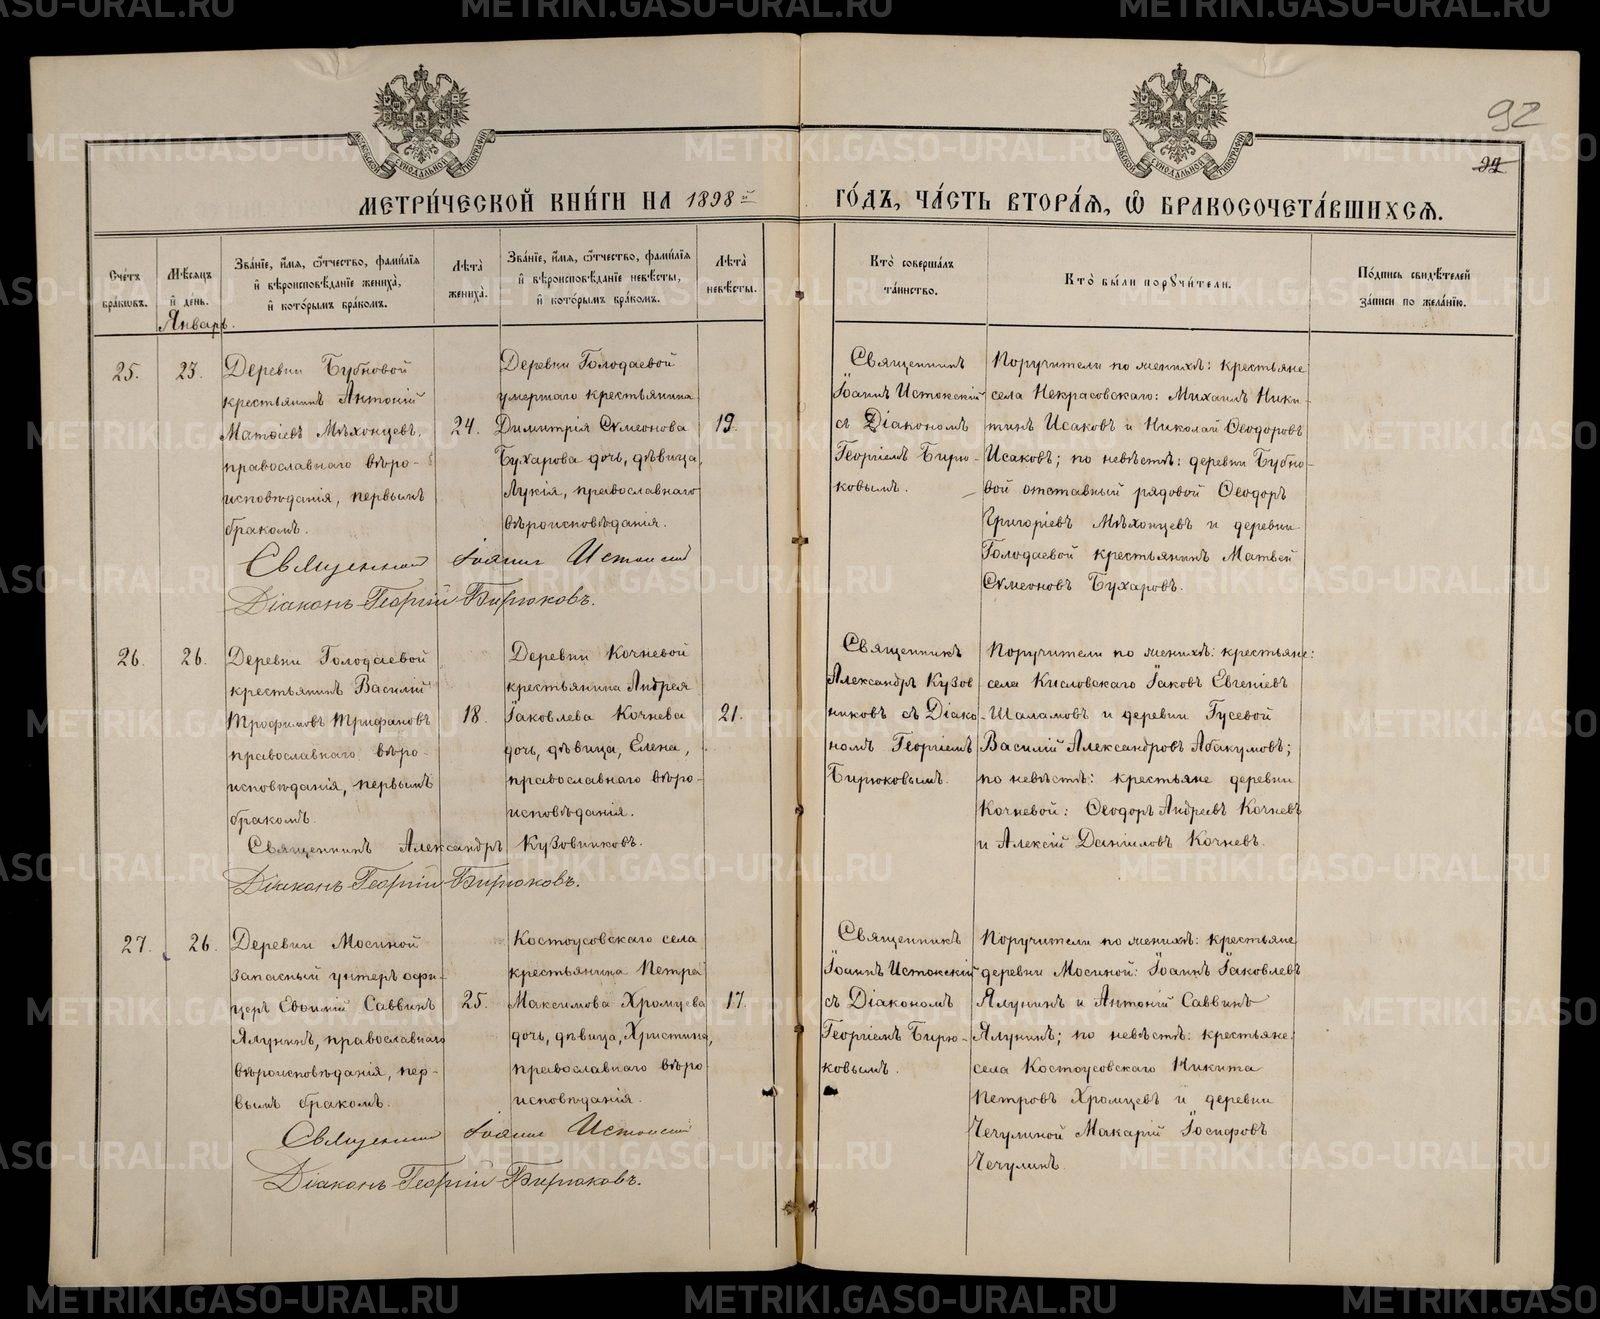 92
94
МЕТРИ́ЧЕСКОЙ КНИ́ГИ НА 1898й
ГО́ДЪ, ЧА́СТЬ ВТОРА́Я, Ѽ БРАКОСОЧЕТА́ВШИХСѦ.
Сче́тъ бра́кѡвъ.
Мѣ́сѧцъ и҆ де́нь.
Зва́нїе, и҆́мѧ, ѻ҆́тчество, фами́лїѧ и҆ вѣроисповѣ́данїе жениха̀, и҆ кото́рымъ бра́комъ.
Лѣ́та жениха̀.
Зва́нїе, и҆́мѧ, ѻ҆́тчество, фами́лїѧ и҆ вѣроисповѣ́данїе невѣ́сты, и҆ кото́рымъ бра́комъ.
Лѣ́та невѣ́сты.
Кто̀ соверша́лъ та́инство.
Кто̀ бы́ли порꙋчи́тели.
По́дпись свидѣ́телей за́писи по жела́нїю.
Январь.
25.
23.
Деревни Бубновой
крестьянинъ Антоній
Матѳіевъ Мѣхонцевъ,
православнаго вѣро-
исповѣданія, первымъ
бракомъ.
24.
Деревни Голодаевой
умершаго крестьянина
Димитрія Сѵмеонова
Бухарова дочь, дѣвица,
Лукія, православнаго
вѣроисповѣданія.
19.
Священникъ
Іоаннъ Истокскій
съ Діакономъ
Георгіемъ Бирю-
ковымъ.
Поручители по женихѣ: крестьяне
села Некрасовскаго: Михаилъ Ники-
тинъ Исаковъ и Николай Ѳеодоровъ
Исаковъ; по невѣстѣ: деревни Бубно-
вой отставный рядовой Ѳеодоръ
Григоріевъ Мѣхонцевъ и деревни
Голодаевой крестьянинъ Матвей
Сѵмеоновъ Бухаровъ.
Священникъ Іоаннъ Истокскій
Діаконъ Георгій Бирюковъ.
26.
26.
Деревни Голодаевой
крестьянинъ Василій
Трофимовъ Трифановъ
православнаго вѣро-
исповѣданія, первымъ
бракомъ.
18.
Деревни Кочневой
крестьянина Андрея
Іаковлева Кочнева
дочь, дѣвица, Елена,
православнаго вѣро-
исповѣданія.
21.
Священникъ
Александръ Кузов
никовъ съ Діако-
номъ Георгіемъ
Бирюковымъ.
Поручители по женихѣ: крестьяне:
села Кисловскаго Іаковъ Евгеніевъ
Шаламовъ и деревни Гусевой
Василій Александровъ Абакумовъ;
по невѣстѣ: крестьяне деревни
Кочневой: Ѳеодоръ Андреевъ Кочневъ
и Алексій Даніиловъ Кочневъ.
Священникъ Александръ Кузовниковъ.
Діаконъ Георгій Бирюковъ.
27.
26.
Деревни Мосиной
запасный унтеръ офи-
церъ Евѳимій Саввинъ
Ялунинъ, православнаго
вѣроисповѣданія, пер-
вымъ бракомъ.
25.
Костоусовскаго села
крестьянина Петра
Максимова Хромцева
дочь, дѣвица, Христина,
православнаго вѣро
исповѣданія.
17.
Священникъ
Іоаннъ Истокскій
съ Діакономъ
Георгіемъ Бирю-
ковымъ.
Поручители по женихѣ: крестьяне
деревни Мосиной: Іоаннъ Іаковлевъ
Ялунинъ и Антоній Саввинъ
Ялунинъ; по невѣстѣ: крестьяне:
села Костоусовскаго Никита
Петровъ Хромцевъ и деревни
Чечулиной Макарій Іосифовъ
Чечулинъ.
Священникъ Іоаннъ Истокскій
Діаконъ Георгій Бирюковъ.
METRIKI.GASO-URAL.RU